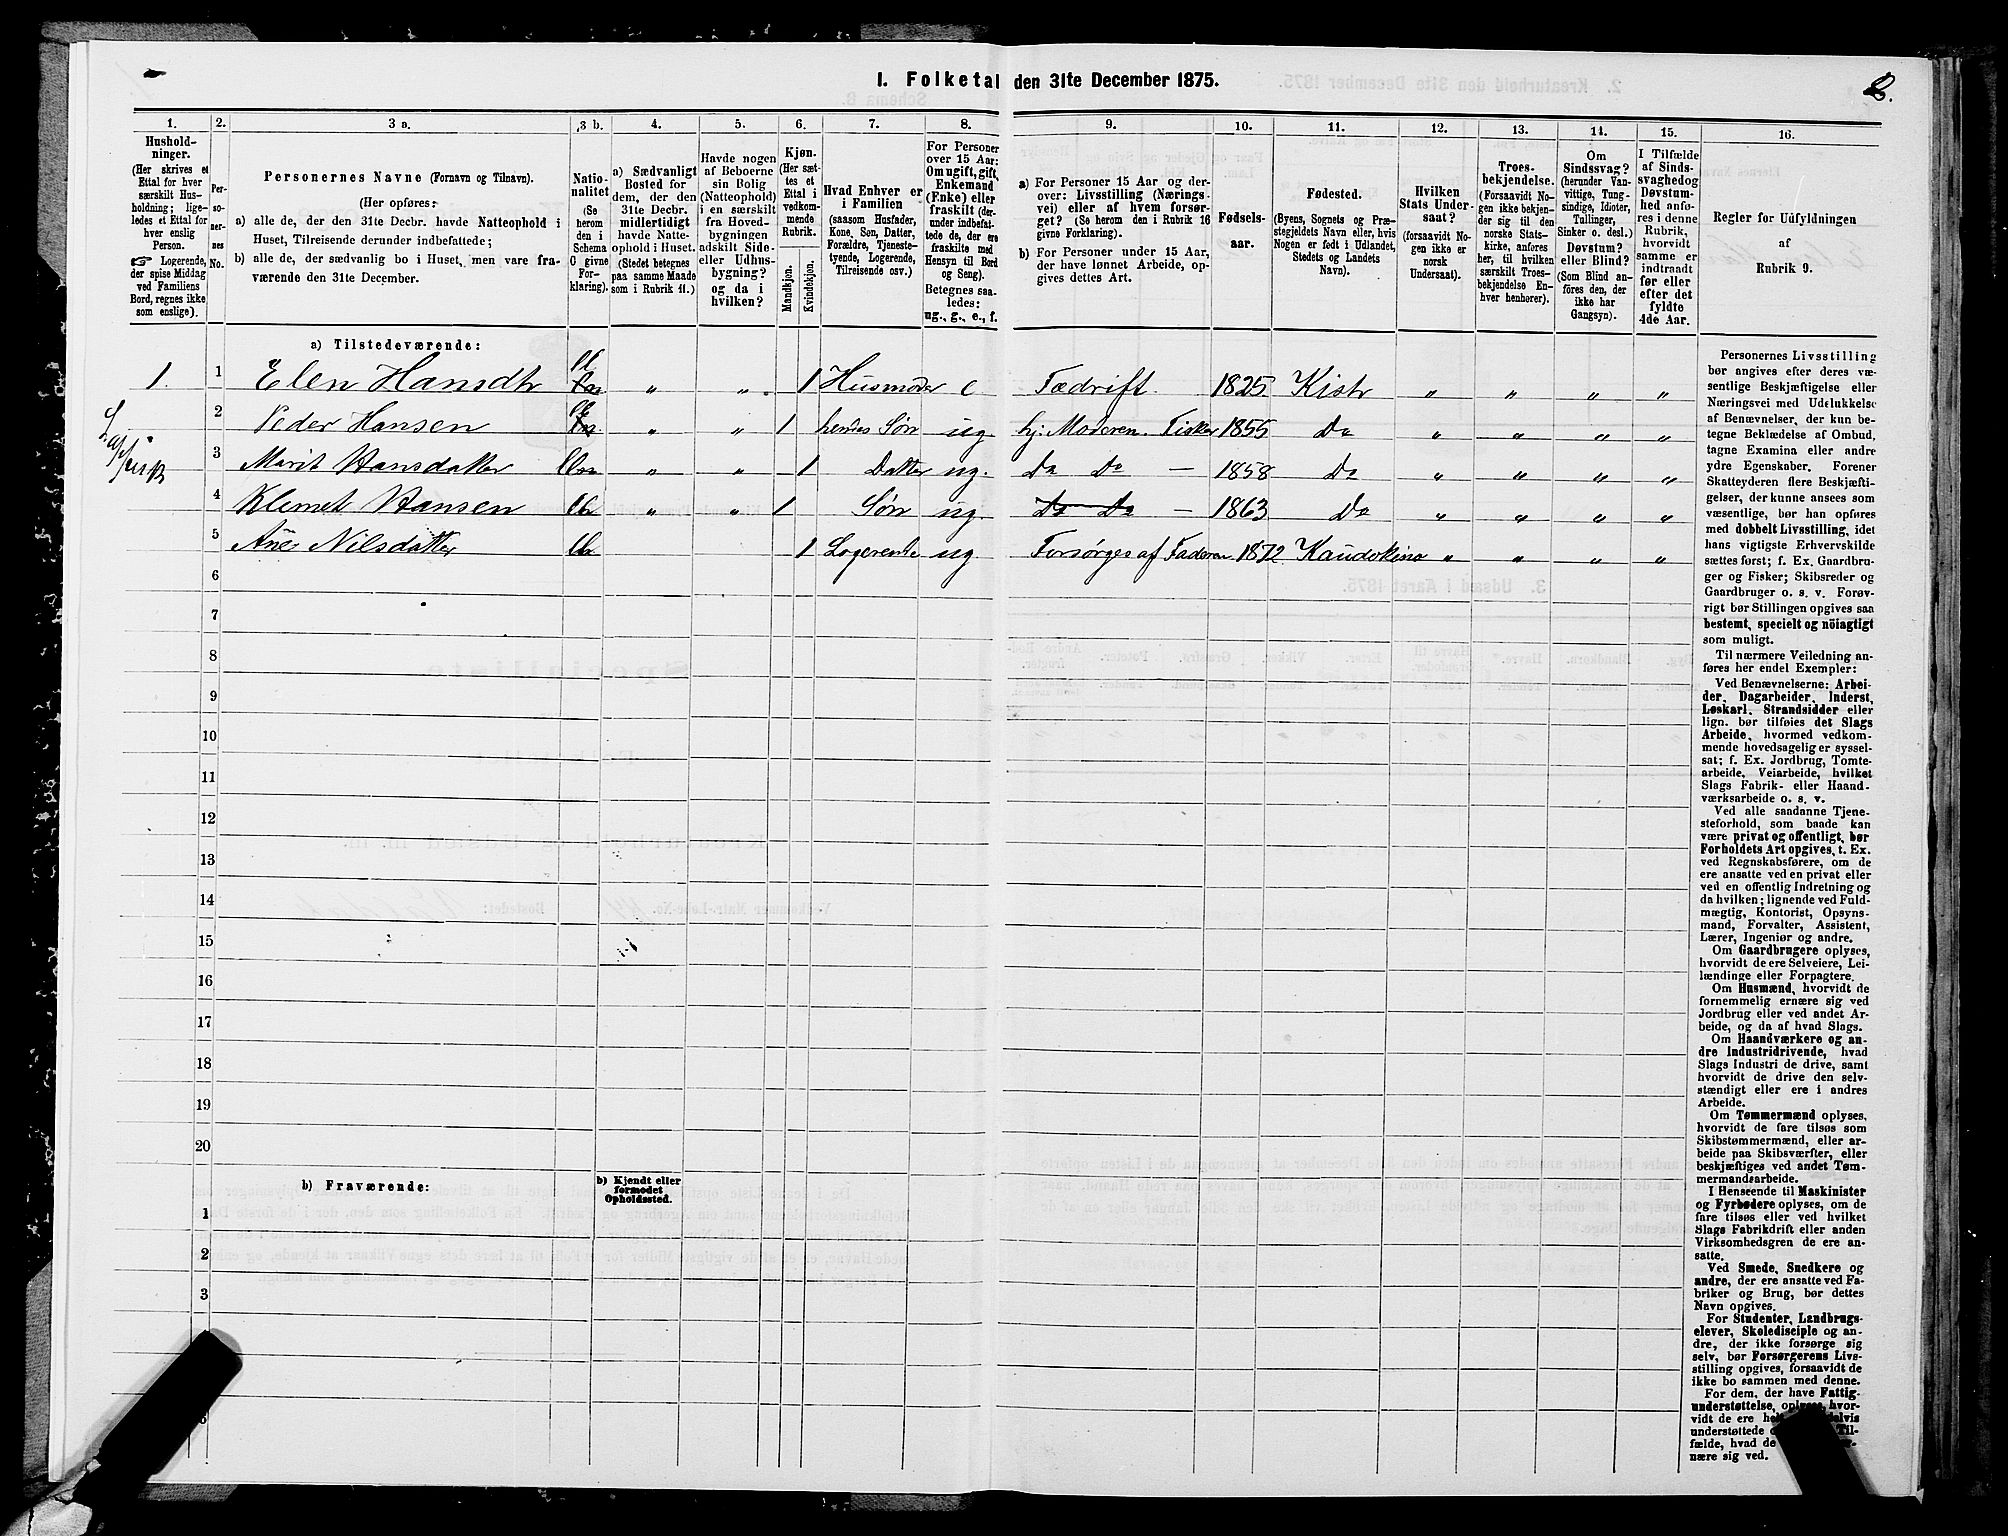 I. Folketal den 31te December 1875.
1.
2.
3 a.
3 b.
4.
5.
6.
7.
8.
9.
10.
11.
12.
13.
14.
15.
16.
Hushold-
ninger.
(Her skrives et
Ettal for hver
særskilt Hus-
holdning; lige-
ledes et Ettal for
hver enslig
Person.
☞ Logerende,
der spise Middag
ved Familiens
Bord, regnes ikke
som enslige).
Per-
so-
ner-
nes
No.
Personernes Navne (Fornavn og Tilnavn).
(Her opføres:
a) alle de, der den 31te Decbr. havde Natteophold i
Huset, Tilreisende derunder indbefattede;
b) alle de, der sædvanlig bo i Huset, men vare fra-
værende den 31te December.
Natio-
nalitet
(Se
herom
den i
Schema
C givne
For-
klaring).
a) Sædvanligt
Bosted for
dem, der den
31te Decbr.
midlertidigt
havde Natte-
ophold i Huset.
(Stedet betegnes
paa samme Maade
som i Rubrik 11.)
Havde nogen
af Beboerne
sin Bolig
(Natteophold)
i en særskilt
fra Hoved-
bygningen
adskilt Side-
eller Udhus-
bygning?
og da i
hvilken?
Kjøn.
(Her sæt-
tes et
Ettal i
vedkom-
mende
Rubrik.
Mandkjøn.
Kvindekjøn.
Hvad Enhver er
i Familien
(saasom Husfader,
Kone, Søn, Datter,
Forældre, Tjeneste-
tyende, Logerende,
Tilreisende osv.)
For Personer
over 15 Aar:
Om ugift, gift,
Enkemand
(Enke) eller
fraskilt (der-
under indbefat-
tede de, der ere
fraskilte med
Hensyn til Bord
og Seng).
Betegnes saa-
ledes:
ug., g., e., f.
a) For Personer 15 Aar og der-
over: Livsstilling (Nærings-
vei) eller af hvem forsør-
get? (Se herom den i Rubrik 16
givne Forklaring).
b) For Personer under 15 Aar,
der have lønnet Arbeide, op-
gives dettes Art.
Fødsels-
aar.
Fødested.
(Byens, Sognets og Præ-
stegjeldets Navn eller, hvis
Nogen er født i Udlandet,
Stedets og Landets
Navn).
Hvilken
Stats Under-
saat?
(forsaavidt No-
gen ikke er
norsk
Undersaat).
Troes-
bekjendelse.
(Forsaavidt No-
gen ikke bekjen-
der sig til den
norske Stats-
kirke, anføres
her, til hvilken
særskilt Troes-
bekjendelse En-
hver henhører).
Om
Sindssvag?
(herunder Van-
vittige, Tung-
sindige, Idioter,
Tullinger,
Sinker o. desl.)
Døvstum?
eller Blind?
(Som Blind an-
føres den, der
ikke har
Gangsyn).
I Tilfælde
af Sinds-
svaghed og
Døvstum-
hed anfø-
res i denne
Rubrik,
hvorvidt
samme er
indtraadt
før eller
efter det
fyldte
4de Aar.
Regler for Udfyldningen
af
Rubrik 9.
a) Tilstedeværende:
1. 1 Elen Hansdtr „ „ 1 Husmoder e Fædrift. 1825. Kistr „ „ „ „
2 Peder Hansen „ „ 1 hendes Søn ug hj: Moderen. Fisker 1855 Do „ „ „ „
3 Marit Hansdatter „ „ 1 Datter ug. Do Do — 1858 Do „ „ „ „
4 Klemet Hansen „ „ 1 Søn ug Do Do — 1863 Do „ „ „ „
5 Ane Nilsdatter 1 Logerende ug Forsørges af Faderen 1872 Kaudokino „ „ „ „
6
7
8
9
10
11
12
13
14
15
16
17
18
19
20
b) Fraværende:
b) Kjendt eller
formodet
Opholdssted.
1
2
3
Personernes Livsstilling
bør angives efter deres væ-
sentlige Beskjæftigelse eller
Næringsvei med Udelukkelse
af Benævnelser, der kun be-
tegne Beklædelse af Ombud,
tagne Examina eller andre
ydre Egenskaber. Forener
Skatteyderen flere Beskjæfti-
gelser, der kunne ansees som
væsentlige, bør han opføres
med dobbelt Livsstilling, idet
hans vigtigste Erhvervskilde
sættes først; f. Ex. Gaardbru-
ger og Fisker; Skibsreder og
Gaardbruger o. s. v. Forøv-
rigt bør Stillingen opgives saa
bestemt, specielt og nöiagtigt
som muligt.
Til nærmere Veiledning an-
føres her endel Exempler:
Ved Benævnelserne: Arbei-
der, Dagarbeider, Inderst,
Løskarl, Strandsidder eller
lign. bør tilføies det Slags
Arbeide, hvormed vedkom-
mende hovedsagelig er syssel-
sat; f. Ex. Jordbrug, Tomte-
arbeide, Veiarbeide, hvilket
Slags Fabrik- eller Haand-
værksarbeide o. s. v.
Ved alle saadanne Tjene-
steforhold, som baade kan
være privat og offentligt, bør
Forholdets Art opgives, t. Ex.
ved Regnskabsførere, om de
ere ansatte ved en privat eller
ved en offentlig Indretning og
da hvilken; lignende ved Fuld-
mægtig, Kontorist, Opsyns-
mand, Forvalter, Assistent,
Lærer, Ingeniør og andre.
Om Gaardbrugere oplyses,
hvorvidt de ere Selveiere, Lei-
lændinge eller Forpagtere.
Om Husmænd, hvorvidt de
fornemmelig ernære sig ved
Jordbrug eller ved andet Ar-
beide, og da af hvad Slags.
Om Haandværkere og an-
dre Industridrivende, hvad
Slags Industri de drive, samt
hvorvidt de drive den selv-
stændigt eller ere i andres
Arbeide.
Om Tømmermænd oplyses,
hvorvidt de fare tilsøs som
Skibstømmermænd, eller ar-
beide paa Skibsværfter, eller
beskjæftiges ved andet Tøm-
mermandsarbeide.
I Henseende til Maskinister
og Fyrbødere oplyses, om de
fare tilsøs eller ved hvilket
Slags Fabrikdrift eller anden
Virksomhedsgren de ere an-
satte.
Ved Smede, Snedkere og
andre, der ere ansatte ved Fa-
briker og Brug, bør dettes
Navn opgives.
For Studenter, Landbrugs-
elever, Skoledisciple og an-
dre, der ikke forsørge sig
selv, bør Forsørgerens Livs-
stilling opgives, forsaavidt de
ikke bo sammen med denne.
For dem, der have Fattig-
understøttelse, oplyses, hvor-
vidt de ere
understøttede
fælde, hvad de
nære sig ved.